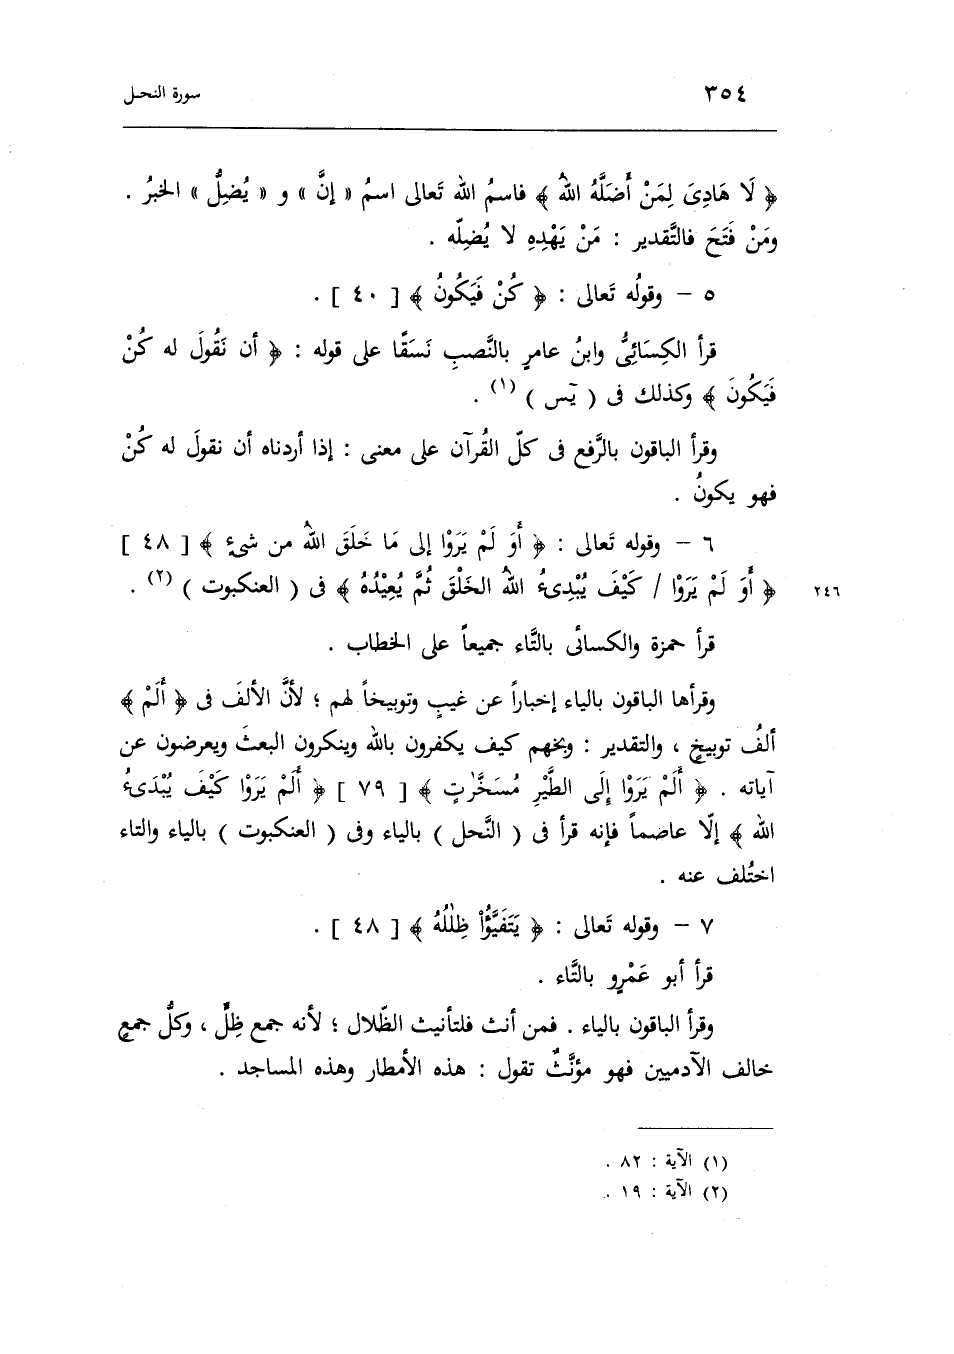 ٣٥٤ سورة النحل
﴿ لَا هَادِىَ لِمَنْ أَضَلَّهُ اللهُ ﴾ فاسمُ الله تَعالى اسمُ « إنَّ » و « يُضِلُّ » الخبرُ .
ومَنْ فَتَحَ فالتَّقدير : مَنْ يَهْدِهِ لا يُضِلّه .
٥ – وقولُه تَعالى : ﴿ كُنْ فَيَكُونُ ﴾ [ ٤٠ ] .
قرأ الكِسَائِىُّ وابنُ عامرٍ بالنَّصبِ نَسَقًا على قوله : ﴿ أن نَقُولَ له كُنْ
فَيَكُونَ ﴾ وكذلك فى ( يٓس ) (١) .
وقرأ الباقون بالرَّفع فى كلّ القُرآن على معنى : إذا أردناه أن نقولَ له كُنْ
فهو يكونُ .
٦ – وقوله تَعالى : ﴿ أَوَ لَمْ يَرَوْا إلى مَا خَلَقَ اللهُ من شىءٍ ﴾ [ ٤٨ ]
﴿ أَوَ لَمْ يَرَوْا / كَيْفَ يُبْدِىءُ اللهُ الخَلْقَ ثُمَّ يُعِيْدُهُ ﴾ فى ( العنكبوت ) (٢) . ٢٤٦
قرأ حمزة والكسائى بالتَّاء جميعاً على الخطاب .
وقرأها الباقون بالياء إخباراً عن غيبٍ وتوبيخاً لهم ؛ لأنَّ الألفَ فى ﴿ أَلَمْ ﴾
ألفُ توبيخٍ ، والتقدير : وبخهم كيف يكفرون بالله وينكرون البعثَ ويعرضون عن
آياته . ﴿ أَلَمْ يَرَوْا إِلَى الطَّيْرِ مُسَخَّرٰتٍ ﴾ [ ٧٩ ] ﴿ أَلَمْ يَرَوْا كَيْفَ يُبْدَىءُ
الله ﴾ إلّا عاصماً فإنه قرأ فى ( النَّحل ) بالياء وفى ( العنكبوت ) بالياء والتاء
اختُلف عنه .
٧ – وقوله تَعالى : ﴿ يَتَفَيَّؤُاْ ظِلٰلُهُ ﴾ [ ٤٨ ] .
قرأ أبو عَمْرٍو بالتَّاء .
وقرأ الباقون بالياء . فمن أنث فلتأنيث الظّلال ؛ لأنه جمع ظِلٍّ ، وكلُّ جمعٍ
خالف الآدميين فهو مؤنَّثٌ تقول : هذه الأمطار وهذه المساجد .
(١) الآية : ٨٢ .
(٢) الآية : ١٩ .